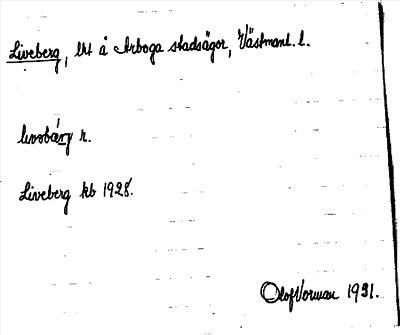 Liveberg, lht å Arboga stadsägor, Västmanl. l.
livəbä́rj n.
Liveberg kb 1928.
Olof Vorman 1931.